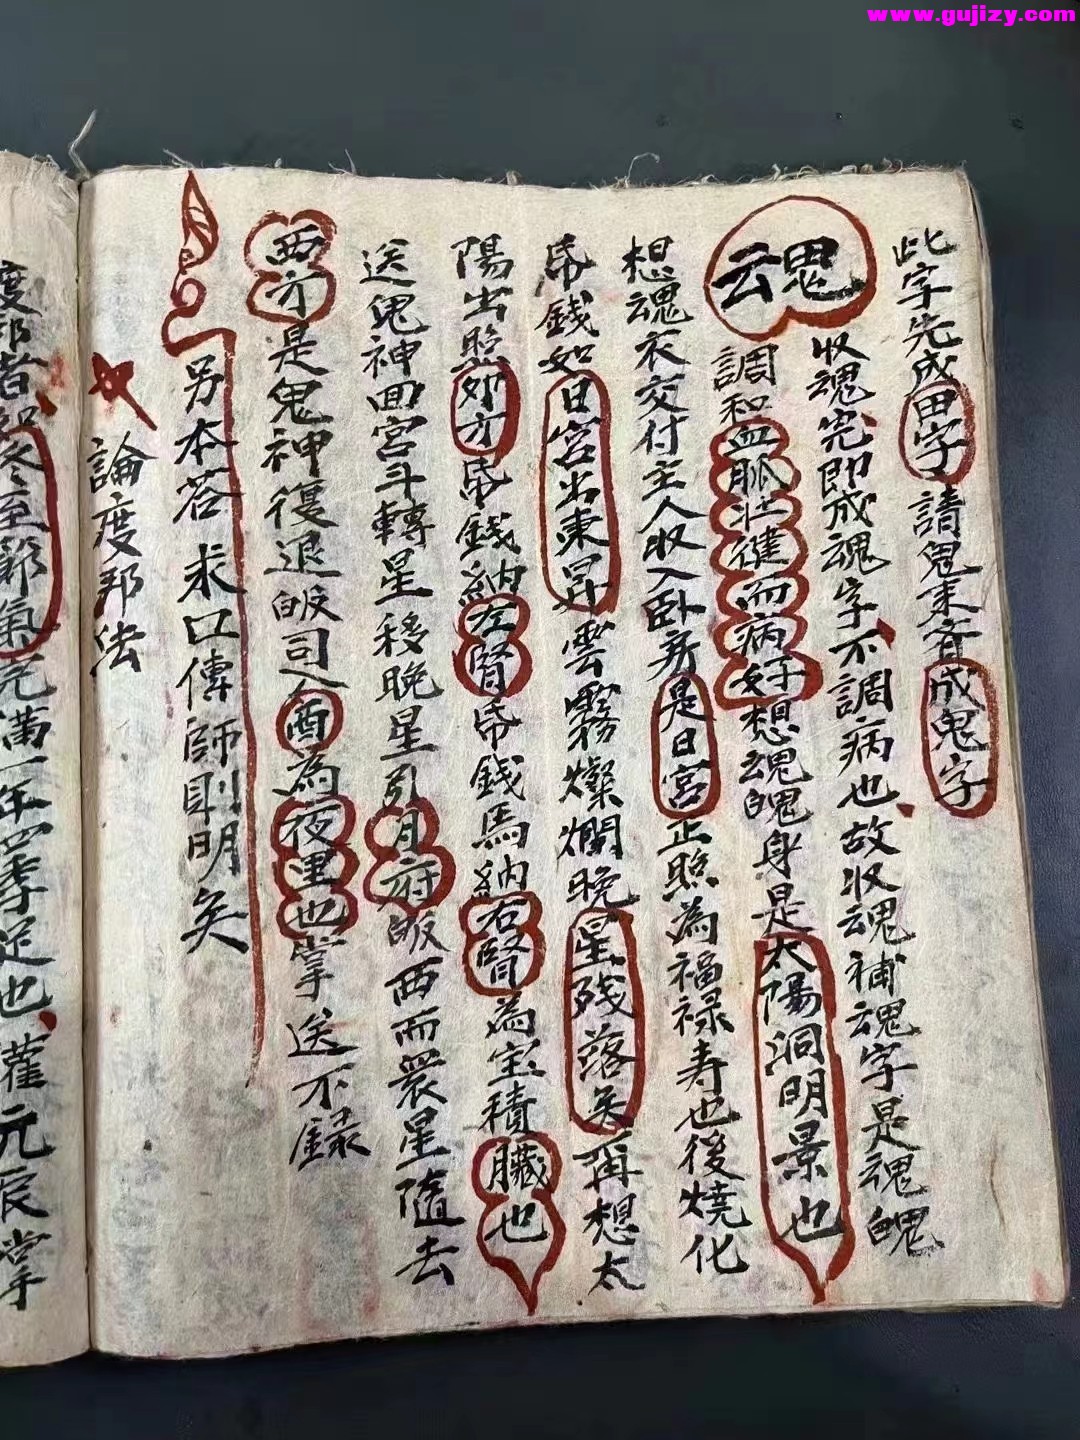 www.gujizy.com
此字先成田字請鬼來齊成鬼字
魂
收魂完即成魂字不調病也故收魂補魂字是魂魄
調和血脈壯健而病好想魂魄身是太陽洞明景也
想魂衣交付主人收入卧房是日宮正照為福禄寿也後燒化
帋錢如日宮出東昇雲霧燦爛晚星残落矣再想太
陽出照如才帋錢納左腎帋錢馬納右腎為宝積臟也
送鬼神回宮斗轉星移晚星引月府皈西而衆星隨去
西方是鬼神復退皈司人酉為夜里也掌送不錄
另本荅求口傳師則明矣
論度邦法
度邦者如冬至節氣充滿一年四季足也藿元辰掌